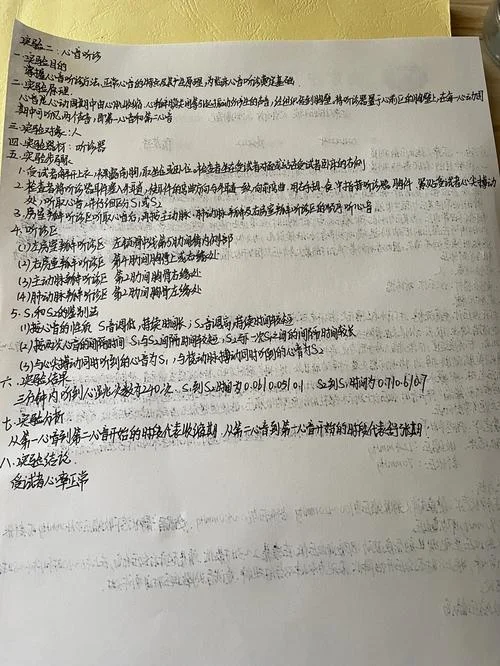 实验二:心音听诊
一.实验目的
掌握心音听诊方法,正常心音的特点及其产生原理,为临床心音听诊奠定基础.
二.实验原理:
心音是心动周期中由心肌收缩,心瓣膜启闭等引起振动所产生的声音,经组织传到胸壁,将听诊器置于心前区的胸壁上,在每一心动周
期中可听见两个声音,即第一心音和第二心音
三.实验对象:人
四.实验器材:听诊器
五.实验步骤:
1.受试者解开上衣,取坐位.检查者坐在受试者对面
2.检查者将听诊器耳件塞入耳道,使耳件的弯曲方向与耳道一致,向前弯曲,用右手拇、食、中指持听诊器胸件,紧贴受试者心尖搏动
处,听取心音,并仔细区分S₁或S₂
3.房室瓣听诊区听取心音后,再按主动脉、肺动脉瓣及右房室瓣听诊区的顺序听心音.
4.听诊区
(1)左房室瓣听诊区 左锁骨中线第5肋间稍内侧部
(2)右房室瓣听诊区 第4肋间胸骨上或右缘处
(3)主动脉瓣听诊区 第2肋间胸骨右缘处
(4)肺动脉瓣听诊区 第2肋间胸骨左缘处
5.S₁和S₂的鉴别法
(1)按心音的性质 S₁音调低,持续时间长;S₂音调高,持续时间较短
(2)按两次心音的间隔时间 S₁与S₂间隔时间较短;S₂与下一次S₁之间的间隔时间较长
(3)与心尖搏动同时听到的心音为S₁,与颈动脉搏动同时听到的心音为S₂
六.实验结果
三分钟内听到心跳次数为240次 S₁到S₂时间为0.06 | 0.05 | 0.1 S₂到S₁时间为0.7 | 0.6 | 0.7
七.实验分析
从第一心音到第二心音开始的时段代表收缩期,从第二心音到第一心音开始的时段代表舒张期.
八.实验结论
受试者心率正常